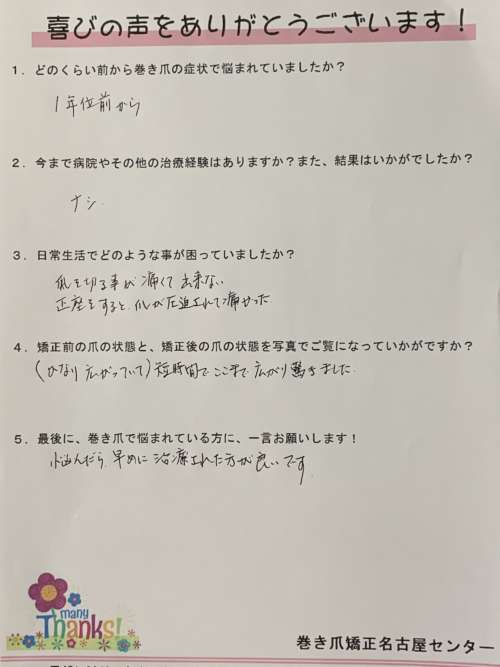 喜びの声をありがとうございます！
１．どのくらい前から巻き爪の症状で悩まれていましたか？
1年位前から
２．今まで病院やその他の治療経験はありますか？また、結果はいかがでしたか？
ナシ.
３．日常生活でどのような事が困っていましたか？
爪を切る事が痛くて出来ない
正座をすると、爪が圧迫されて痛かった
４．矯正前の爪の状態と、矯正後の爪の状態を写真でご覧になっていかがですか？
(かなり広がっていて)短時間でここまで広がり驚きました.
５．最後に、巻き爪で悩まれている方に、一言お願いします！
悩んだら、早めに治療された方が良いです
many
Thanks!
巻き爪矯正名古屋センター